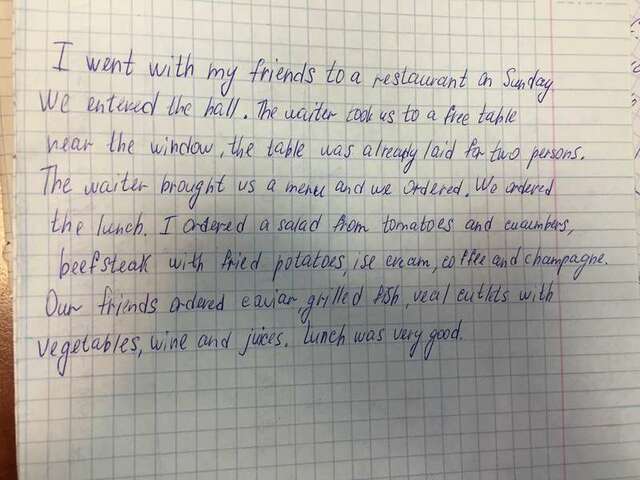 I went with my friends to a restaurant on Sunday
We entered the hall. The waiter took us to a free table
near the window, the table was already laid for two persons.
The waiter brought us a menu and we ordered. We ordered
the lunch. I ordered a salad from tomatoes and cucumbers,
beefsteak with fried potatoes, ise cream, coffee and champagne.
Our friends ordered caviar grilled fish, veal cutlets with
vegetables, wine and juices. Lunch was very good.